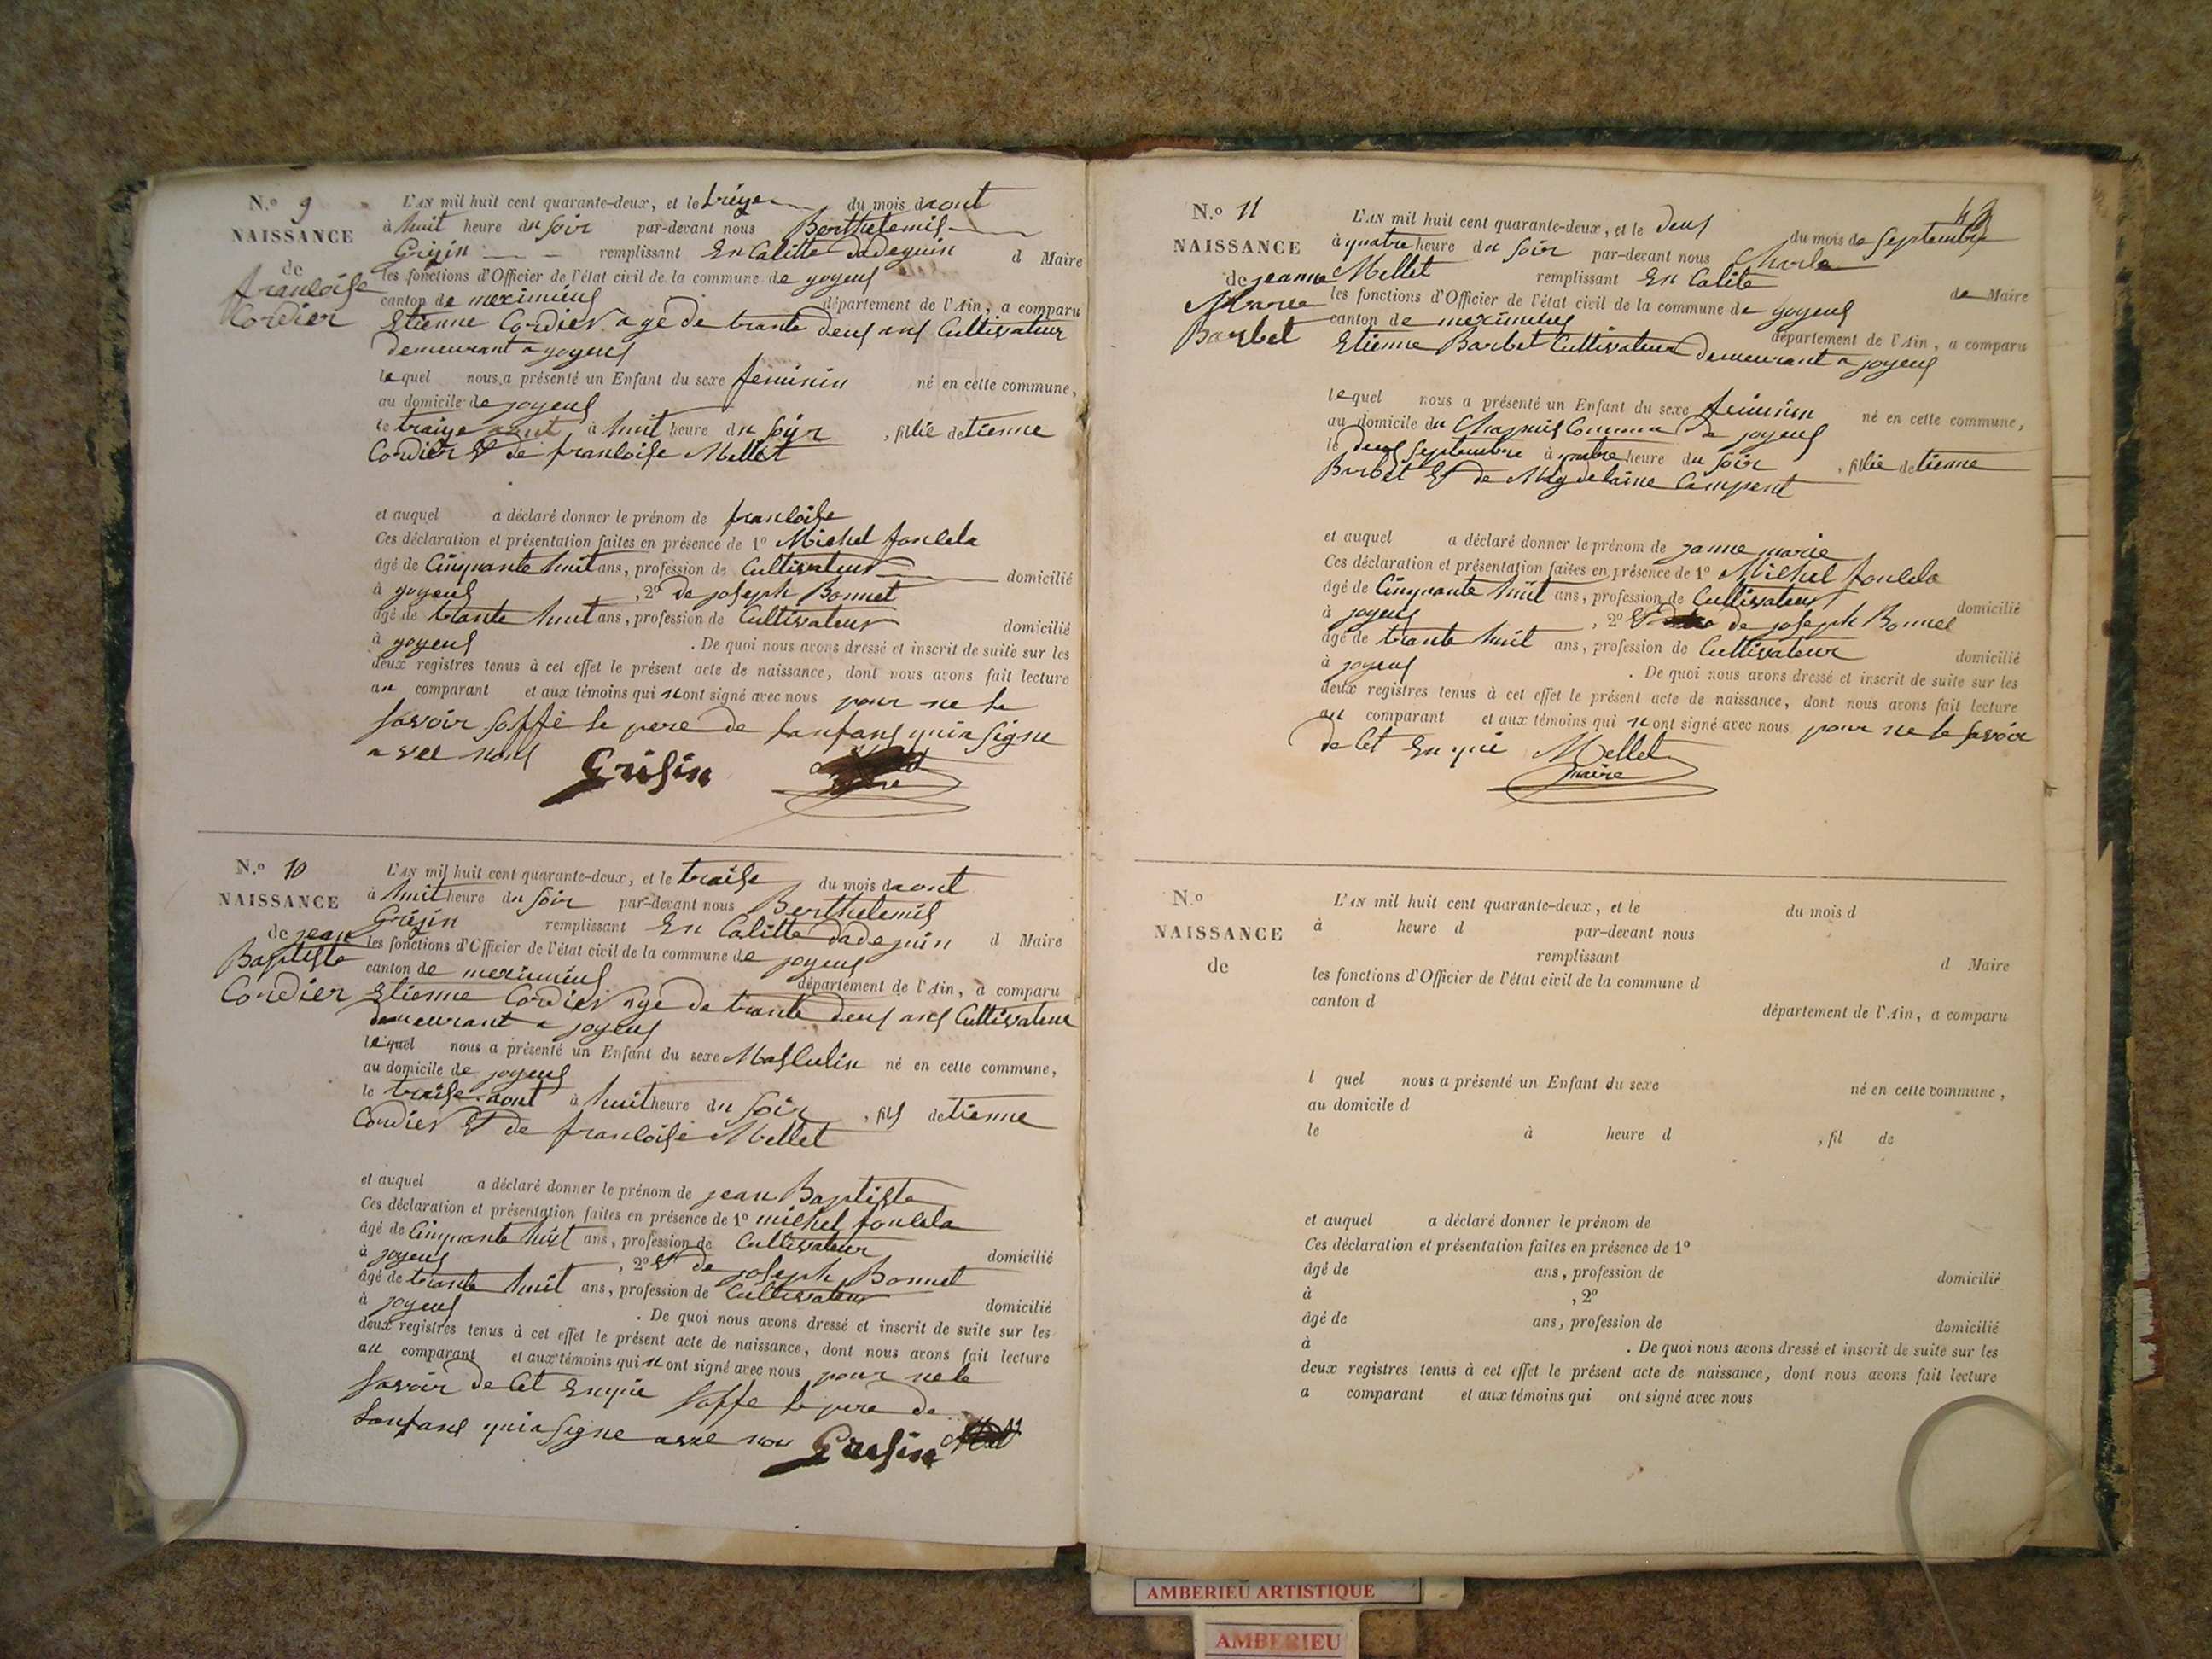 N.º 9
NAISSANCE
de
francoise
Cordier
L'AN mil huit cent quarante-deux, et le treize du mois daout
à huit heure du soir par-devant nous Berthelemis
Grisin remplissant En Calitte dadeguin d Maire
les fonctions d'Officier de l'état civil de la commune de yoyeus
canton de meximieus département de l'Ain, a comparu
Etienne Cordier age de trante deus ans Cultivateur
demeurant a yoyeus
lequel nous a présenté un Enfant du sexe feminin né en cette commune,
au domicile de joyeus
le traize aout à huit heure du soir , fillie detienne
Cordier Et de francoise Mellet
et auquel a déclaré donner le prénom de francoise
Ces déclaration et présentation faites en présence de 1º Michel
âgé de Cinquante huit ans, profession de Cultivateur domicilié
à yoyeus , 2º de joseph Bonnet
âgé de trante huit ans, profession de Cultivateur domicilié
à yoyeus . De quoi nous avons dressé et inscrit de suite sur les
deux registres tenus à cet effet le présent acte de naissance, dont nous avons fait lecture
au comparant et aux témoins qui nont signé avec nous pour ne le
savoir saffé le pere de lanfans qui a signe
avec nous Grisin
N.º 10
NAISSANCE
de jean
Baptiste
Cordier
L'AN mil huit cent quarante-deux, et le traise du mois daout
à huit heure du soir par-devant nous Berthelemis
Grisin remplissant En Calitte dadeguin d Maire
les fonctions d'Officier de l'état civil de la commune de joyeus
canton de meximieus département de l'Ain, a comparu
Etienne Cordier age de trante deus ans Cultivateur
demeurant a joyeus
lequel nous a présenté un Enfant du sexe Masculin né en cette commune,
au domicile de joyeus
le traise aout à huit heure du soir , fils detienne
Cordier Et de francoise Mellet
et auquel a déclaré donner le prénom de jean Baptiste
Ces déclaration et présentation faites en présence de 1º michel
âgé de Cinquante huit ans, profession de Cultivateur domicilié
à joyeus , 2º Et de joseph Bonnet
âgé de trante huit ans, profession de Cultivateur domicilié
à joyeus . De quoi nous avons dressé et inscrit de suite sur les
deux registres tenus à cet effet le présent acte de naissance, dont nous avons fait lecture
au comparant et aux témoins qui nont signé avec nous pour ne le
savoir de Cet Enquie saffe le pere de
lanfans qui a signe avec nou Grisin
N.º 11
NAISSANCE
de jeanne
Marie
Barbet
L'AN mil huit cent quarante-deux, et le deus du mois de Septembre
à quatre heure du soir par-devant nous Charle
Mellet remplissant En Calite de Maire
les fonctions d'Officier de l'état civil de la commune de yoyeus
canton de meximieus département de l'Ain, a comparu
Etienne Barbet Cultivateur demeurant a joyeus
lequel nous a présenté un Enfant du sexe feminin né en cette commune,
au domicile du de joyeus
le deus Septembre à quatre heure du soir , fillie detienne
Barbet Et de Magdelaine
et auquel a déclaré donner le prénom de janne marie
Ces déclaration et présentation faites en présence de 1º Michel
âgé de Cinquante huit ans, profession de Cultivateur domicilié
à joyeus , 2º Et de joseph Bonnet
âgé de trante huit ans, profession de Cultivateur domicilié
à joyeus . De quoi nous avons dressé et inscrit de suite sur les
deux registres tenus à cet effet le présent acte de naissance, dont nous avons fait lecture
au comparant et aux témoins qui nont signé avec nous pour ne le savoir
de Cet Enquie Mellet
maire
N.º
NAISSANCE
de
L'AN mil huit cent quarante-deux, et le du mois d
à heure d par-devant nous
remplissant d Maire
les fonctions d'Officier de l'état civil de la commune d
canton d département de l'Ain, a comparu
l quel nous a présenté un Enfant du sexe né en cette commune,
au domicile d
le à heure d , fil de
et auquel a déclaré donner le prénom de
Ces déclaration et présentation faites en présence de 1º
âgé de ans, profession de domicilié
à , 2º
âgé de ans, profession de domicilié
à . De quoi nous avons dressé et inscrit de suite sur les
deux registres tenus à cet effet le présent acte de naissance, dont nous avons fait lecture
a comparant et aux témoins qui ont signé avec nous
AMBERIEU ARTISTIQUE
AMBERIEU